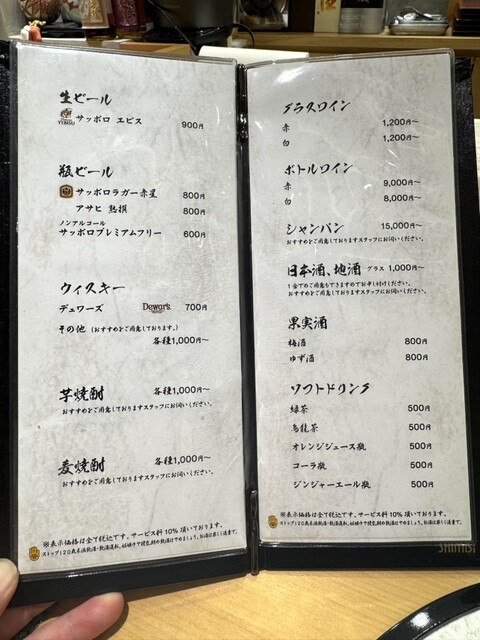 生ビール
YEBISU サッポロ ヱビス 900円
瓶ビール
サッポロラガー赤星 800円
アサヒ 熟撰 800円
ノンアルコール
サッポロプレミアムフリー 600円
ウィスキー
デュワーズ Dewar's 700円
その他 (おすすめをご用意しております。)
各種1,000円〜
芋焼酎 各種1,000円〜
おすすめをご用意しておりますスタッフにお伺いください。
麦焼酎 各種1,000円〜
おすすめをご用意しておりますスタッフにお伺いください。
※表示価格は全て税込です。サービス料10%頂いております。
グラスワイン
赤 1,200円〜
白 1,200円〜
ボトルワイン
赤 9,000円〜
白 8,000円〜
シャンパン 15,000円〜
おすすめをご用意しておりますスタッフにお伺いください。
日本酒、地酒 グラス 1,000円〜
1合でのご用意もできますのでお申し付けください。
おすすめをご用意しておりますスタッフにお伺いください。
果実酒
梅酒 800円
ゆず酒 800円
ソフトドリンク
緑茶 500円
烏龍茶 500円
オレンジジュース瓶 500円
コーラ瓶 500円
ジンジャーエール瓶 500円
※表示価格は全て税込です。サービス料10%頂いております。
SHIMBI